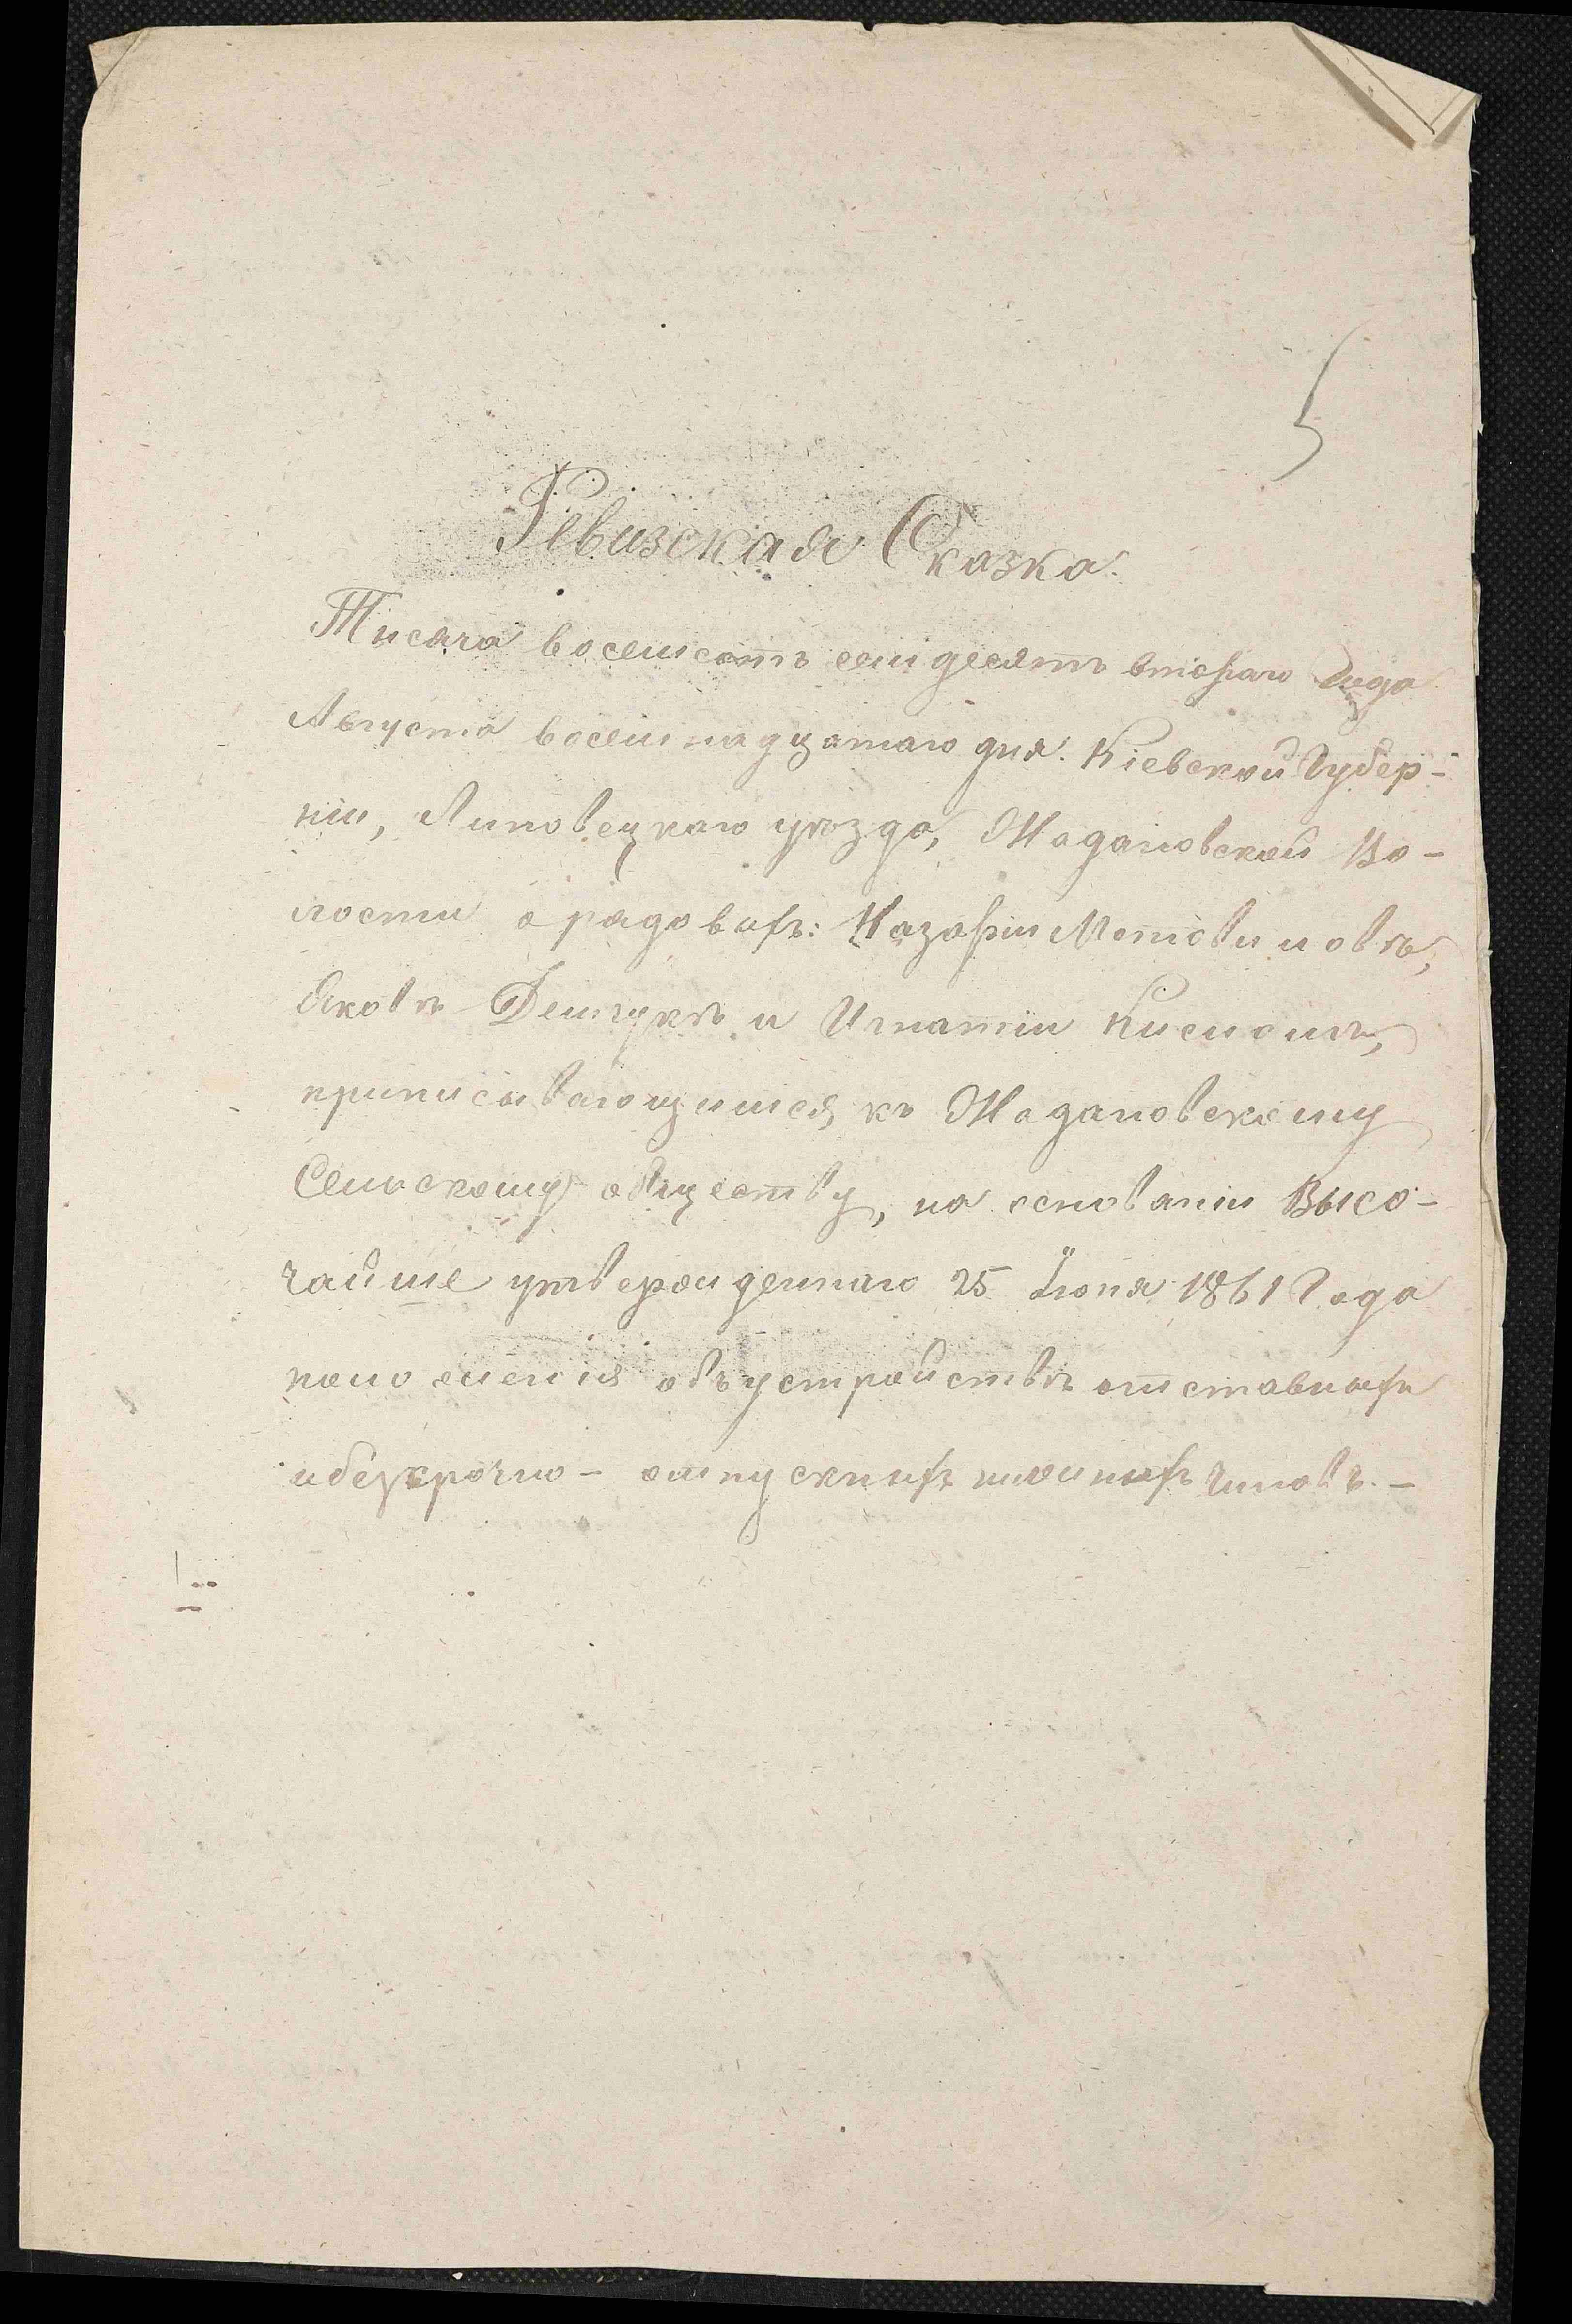 5
Ревизская Сказка.
Тисяча восемсотъ семидесятъ втораго Года
Августа восемнадцатаго дня. Кіевской Губер-
ніи, Липовецкаго уѣзда, Жадановской Во-
лости о рядовихъ: Назаріи Мотовиловѣ,
Яковѣ Демчукѣ и Игнатіи Кисломъ,
приписывающимся къ Жадановскому
Сельскому обществу, на основаніи Высо-
чайше утвержденнаго 25 Іюня 1861 Года
положенія объ устройствѣ отставныхъ
и безсрочно- отпускнихъ нижнихъ чиновъ.-